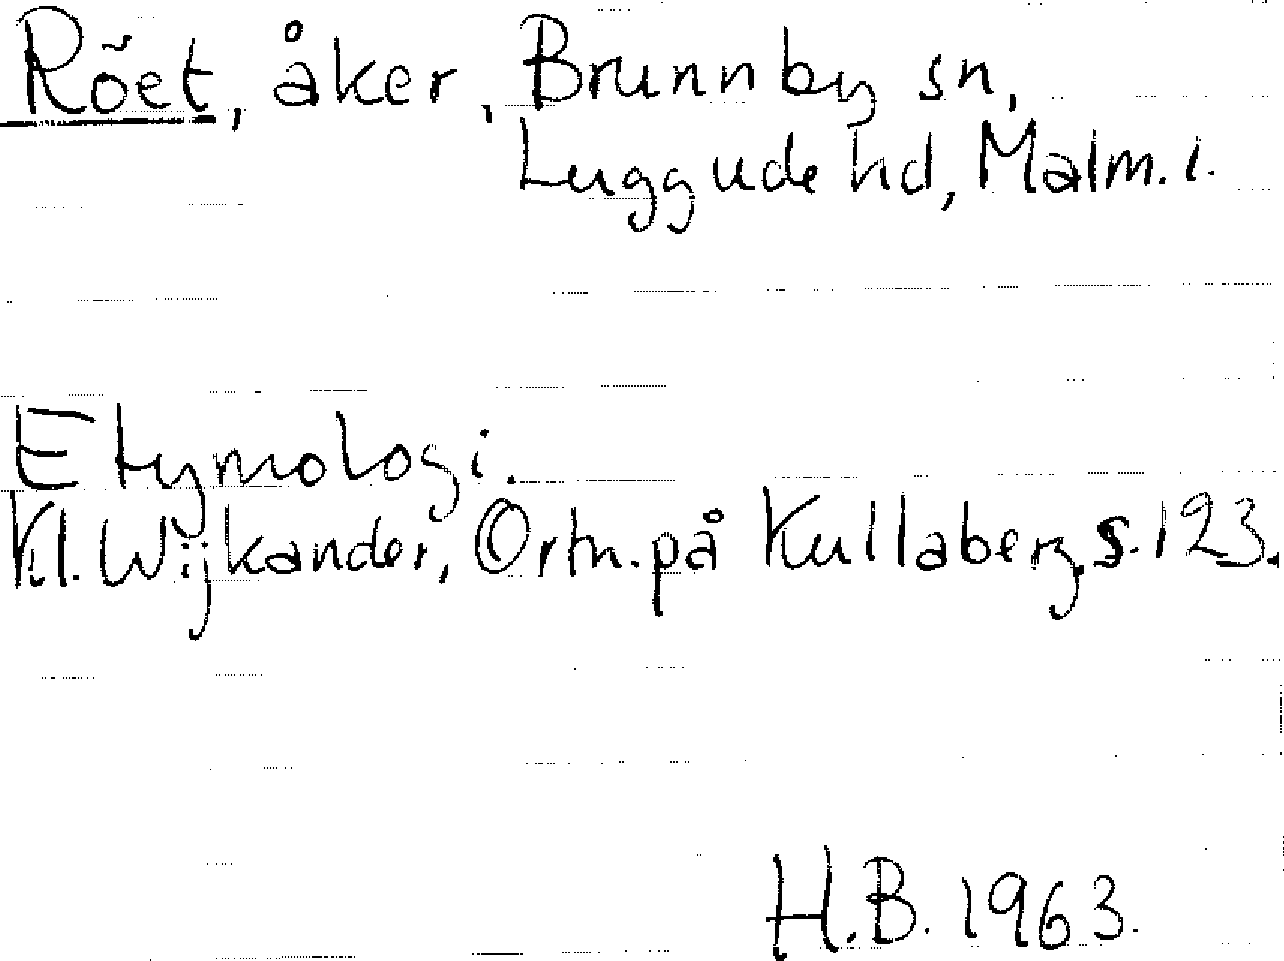 Röet, åker, Brunnby sn,
Luggude hd, Malm. l.
Etymologi.
Kl. Wijkander, Ortn. på Kullaberg, s. 123.
H.B. 1963.